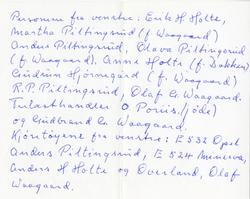 Personene fra venstre: Eirik H Holte,
Martha Piltingsrud (f Waagaard)
Anders Piltingsrud, Olava Piltingsrud
(f. Waagaard). Anne Holte (f. Bakken)
Gudrun Hjörnegård (f. Waagaard)
R.P. Piltingsrud, Olaf G. Waagaard.
O (jöde)
og Gudbrand G. Waagaard.
Kjöretöyene fra venstre: E 532 Opel
Anders Piltingsrud, E 524 Minerva,
Anders H Holte og Overland, Olaf
Waagaard.